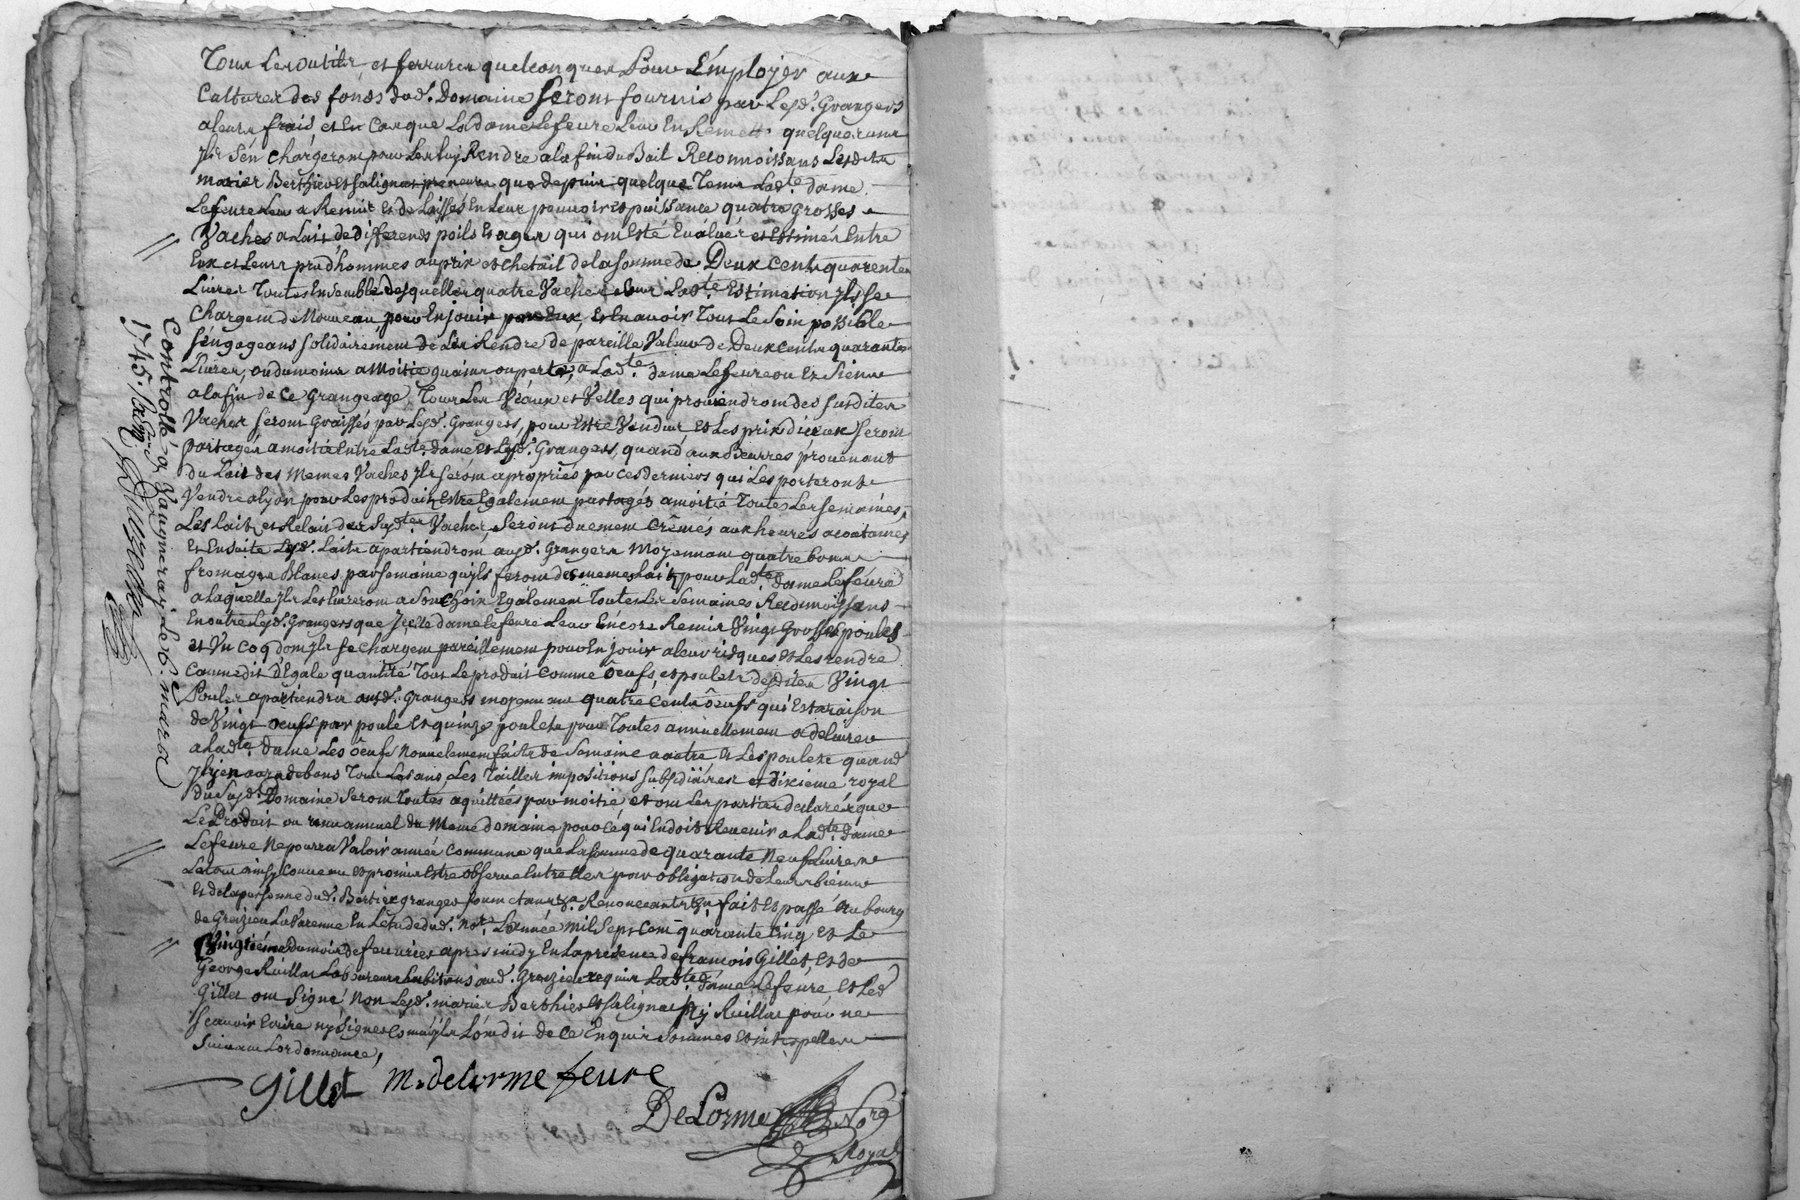 Tous Les outils et ferrures quelconques Pour Employer aux
Cultures des fonds dud. Domaine Seront fournis par Lesd. Grangers
a leurs frais, et En Cas que Lad dame Lefeure Leur En Remett. quelques uns
Jls S'en chargeront pour Les luy Rendre a la fin du Bail Reconnoissans Lesdits
mariés Berthier et Salignat preneurs que depuis quelque Tems Lad.te dame
Lefeure Leur a Remis et de Laissés En Leur pouvoir et puissance quatre grosses
Vaches a Lait de differends poils Et ages qui ont Esté Evalués et Estimés Entre
Eux et Leurs prudhommes au prix et chetail de la somme de Deux Cents quarente
Livres Toutes Ensemble desquelles quatre Vaches Sur Lad.te Estimation Jls Se
Chargent de Nouveau, pour En jouir par Eux, Et En avoir Tout Le Soin possible
S'engageans Solidairement de Les Rendre de pareille Valeur de Deux Cents quarante
Livres, ou du moins a Moitié gains ou perte, a Lad.te dame Lefeure ou Ez Siens
a la fin de Ce Grangeage, Tous Les Veaux et Velles qui proviendront des susdites
Vaches Seront Graissés par Lesd. Grangers, pour Estre Vendus Et Les prix d'iceux Seront
partagés a moitié Entre Lad.te dame et Lesd. Grangers, quand aux Beurres provenant
du Lait des Memes Vaches Jls Seront apropriés par ces derniers qui Les porteront
Vendre a Lyon pour Les produits Estre Egalement partagés a moitié Toutes Les Semaines,
Les Lait et Relait des Susd.tes Vaches, Seront duement Crêmés aux heures acoutumées
Et Ensuite Lesd. Laits apartiendront, ausd. Grangers Moyennant quatre bons
fromages Blancs par Semaine qu'ils feront des memes Laits pour Lad.te dame Lefeure
a Laquelle Jls Les livreront a Son Choix Egalement Toutes Les Semaines Reconnoissans
En outre Lesd. Grangers que Jcelle dame Lefeure Leur a Encore Remis Vingt Grosses poules
et Un Coq dont Jls Se Chargent pareillement pour En jouir a leur risques Et Les rendre
Comme dit d'Egale quantité Tout Le produit Comme Oeufs, et poulets desdites Vingt
Poules apartiendra ausd. Grangers moyennant quatre Cents Oeufs qui Est a raison
de Vingt Oeufs par poule Et quinze poulets pour Toutes annuellement a delivrer
a Lad.te dame Les Oeufs nouvelement faits de Semaine a autre & Les poulets quand
Jl y en aura de bons Tous Les ans, Les Tailles impositions Subsidiaires et dixieme royal
du Susd. Domaine Seront Toutes aquittées par moitié et ont Les parties declaré que
Le Produit ou revenu annuel du Meme domaine pour Cé qui En doit Revenir a Lad.te dame
Lefeure Ne pourra Valoir année Commune que La Somme de quarante Neuf Livres
Le tout ainsy Convenu Et promis Estre observé Entre Elles par obligation de Leurs biens
Et de la personne dud. Bertier granger Soumettans &a. Renonceants &a fait et passé Au bourg
de Grezieu La Varenne En L'etude dud. No.re L'année Mil Sept Cent quarante Cinq Et Le
Vingtiéme du mois de fevrier apres midy En La présence de françois Gillet, Et de
George Ruillat Laboureurs habitans aud. Grezieu requis Lad.te dame Lefeure, et Led
Gillet ont Signé Non Lesd. mariés Berthier et Salignat Ny Ruillat pour ne
Scavoir Ecrire ny Signer comme Jls L'ont dit de Ce Enquis Sommés Et interpellés
Suivant L'ordonnance,
Gillet M. delorme feure
DeLorme No.re
Royal
Controllé a Vaugneray Le 6. mars
1745.